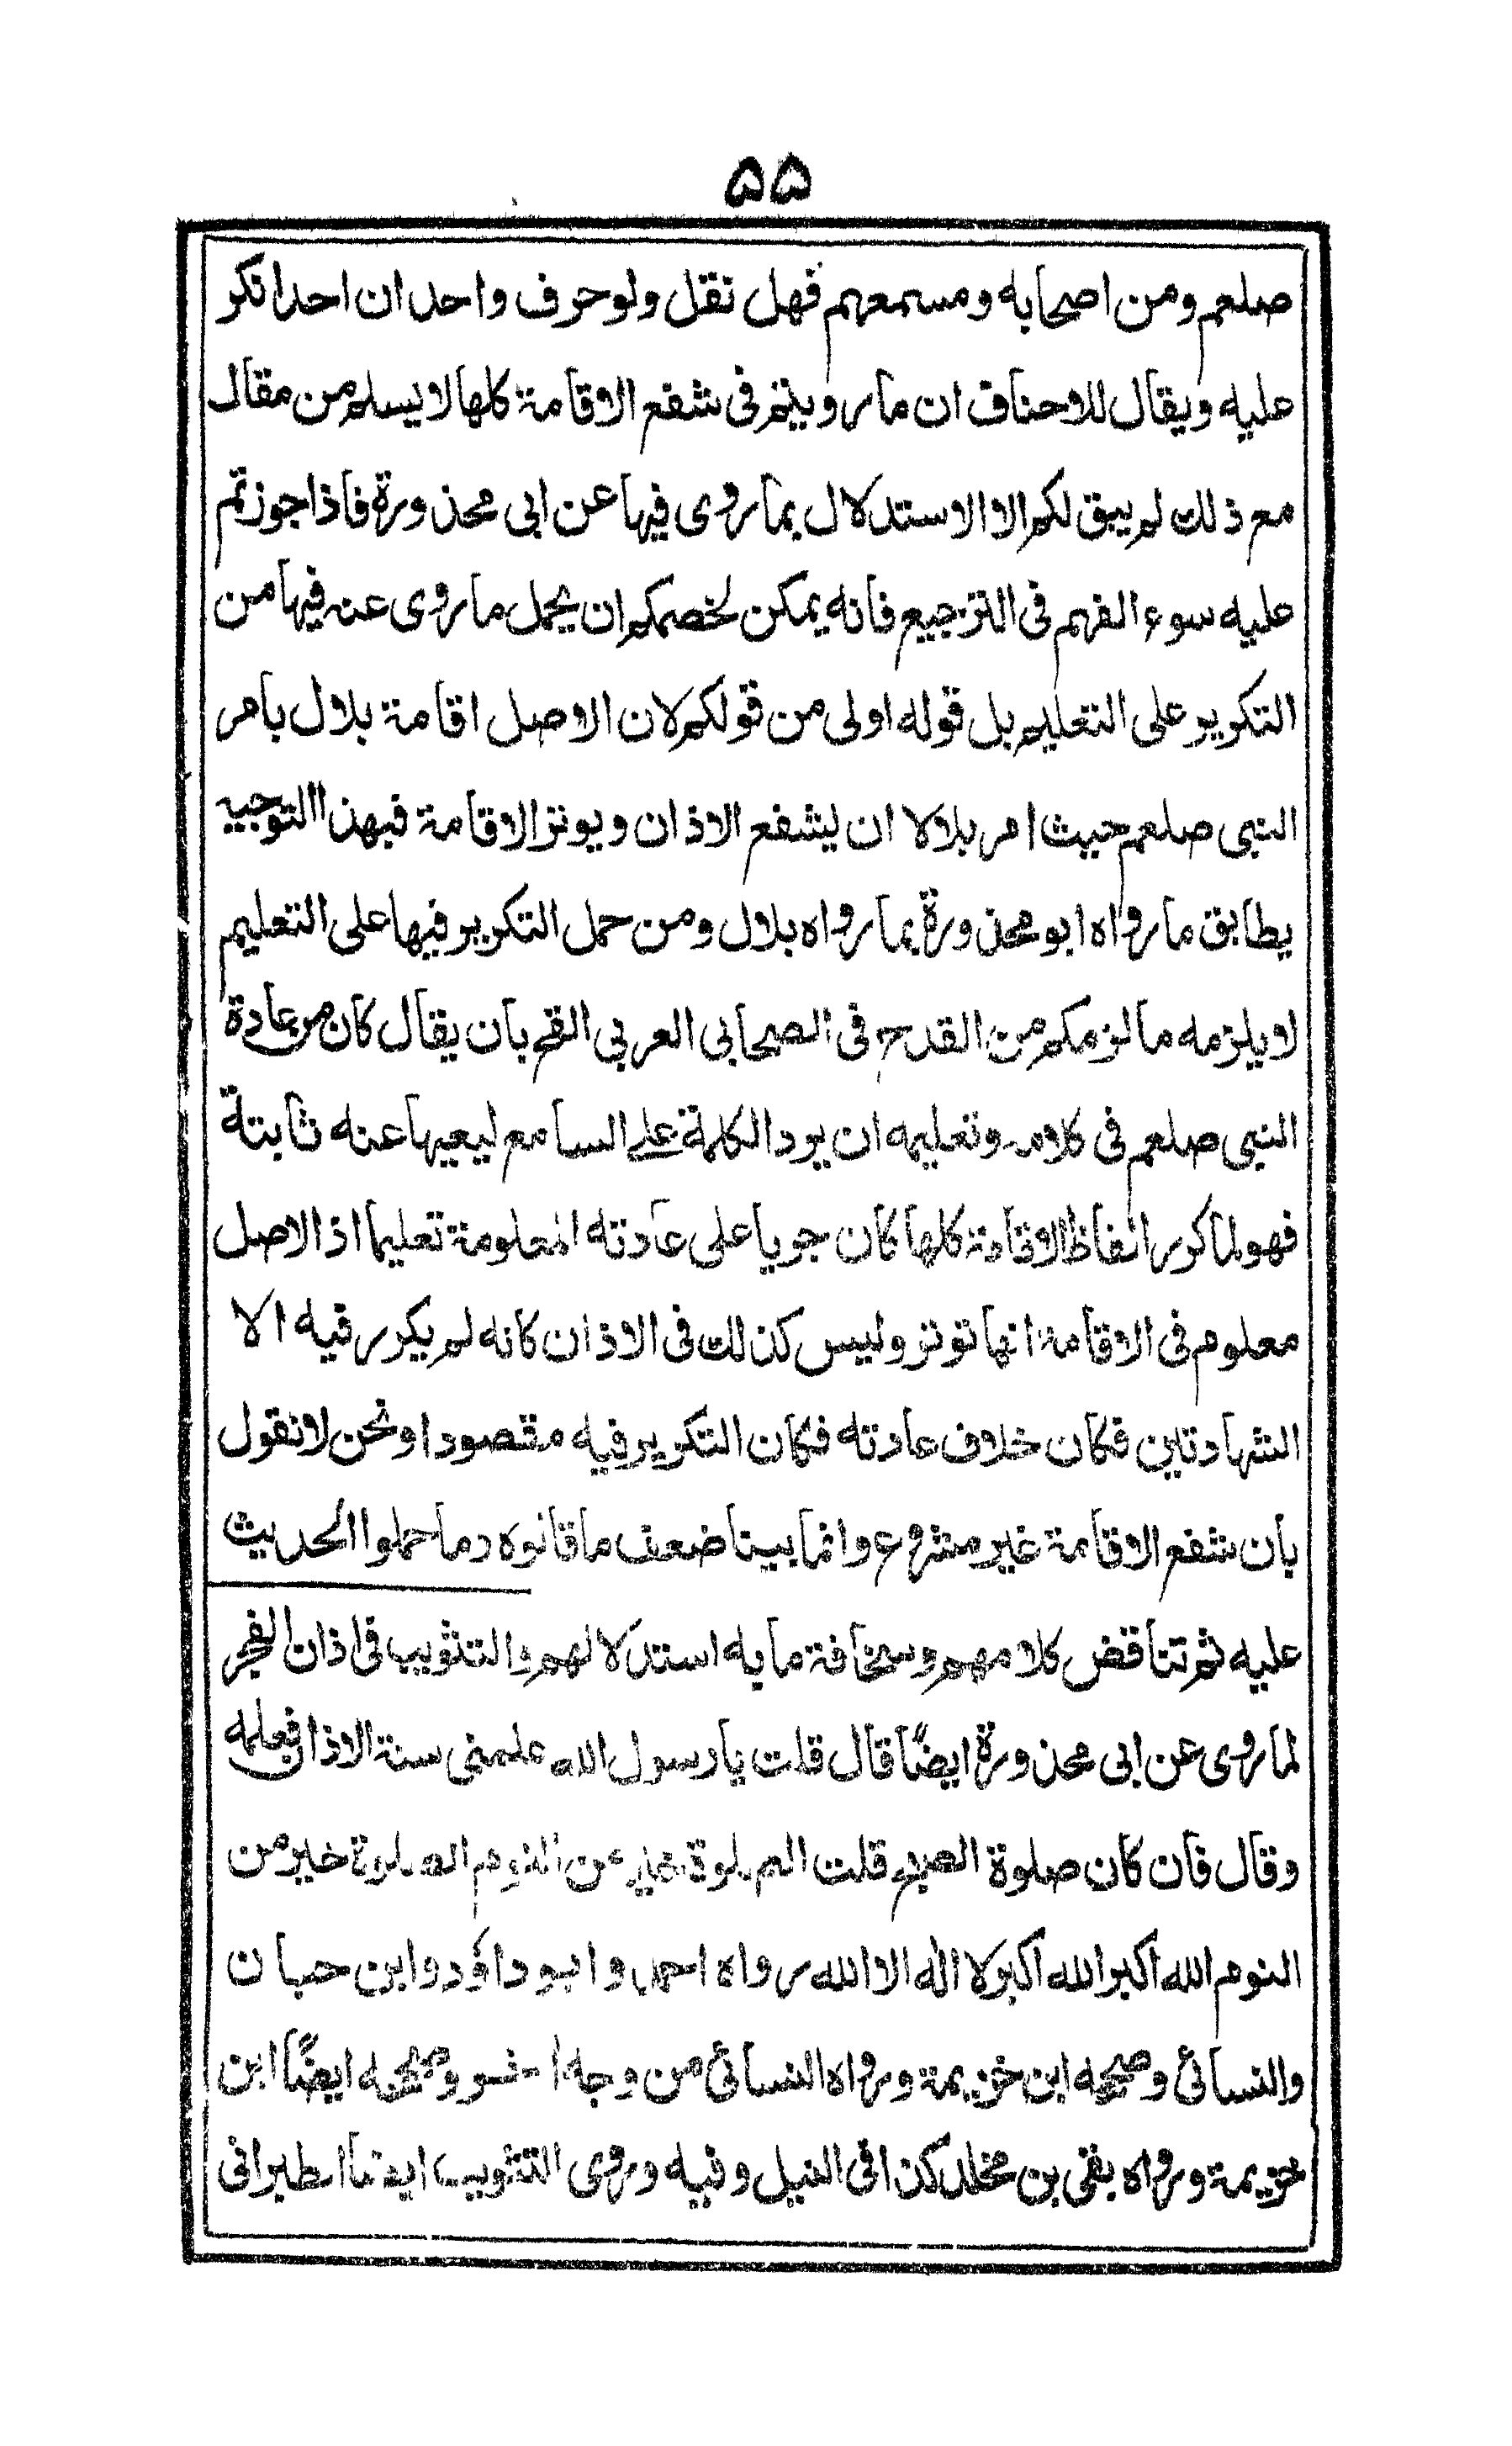 ۵۵
صلعم ومن اصحابه ومسمعهم فهل نقل ولو حرف واحد ان احدا نكر
عليه ويقال للاحناف ان ما رويتم فى شفع الاقامة كلها لا يسلم من مقال
مع ذلك لم يبق لكم الا الاستدلال بما روى فيها عن ابى محذورة فاذا جوزتم
عليه سوء الفهم فى الترجيع فانه يمكن لخصمكم ان يحمل ما روى عنه فيها من
التكرير على التعليم بل قوله اولى من قولكم لان الاصل اقامة بلال بامر
النبى صلعم حيث امر بلالا ان يشفع الاذان ويوتر الاقامة فبهذا التوجيه
يطابق ما رواه ابو محذورة بما رواه بلال ومن حمل التكرير فيها على التعليم
لا يلزمه ما لزمكم من القدح فى الصحابى العربى القح بان يقال كان من عادة
النبى صلعم فى كلامه وتعليمه ان يرد الكلمة على السامع ليعيها عنه ثابتة
فهو لما كرر الفاظ الاقامة كلها كان جريا على عادته المعلومة تعليما اذ الاصل
معلوم فى الاقامة انها توتر وليس كذلك فى الاذان كانه لم يكرر فيه الا
الشهادتين فكان خلاف عادته فكان التكرير فيه مقصودا ونحن لا نقول
بان شفع الاقامة غير مشروع وانما بينا ضعف ما قالوه وما حملوا الحديث
عليه ثم تناقض كلامهم وسخافة ما به استدلالهم والتثويب فى اذان الفجر
لما روى عن ابى محذورة ايضًا قال قلت يا رسول الله علمنى سنة الاذان فعلمه
وقال فان كان صلوة الصبح قلت الصلوة خير من النوم الصلوة خير من
النوم الله اكبر الله اكبر لا اله الا الله رواه احمد وابو داؤد وابن حبان
والنسائى وصححه ابن خزيمة ورواه النسائى من وجه اخر وصححه ايضًا ابن
خزيمة ورواه بقى بن مخلد كذا فى النيل وفيه وروى التثويب ايضا الطبرانى